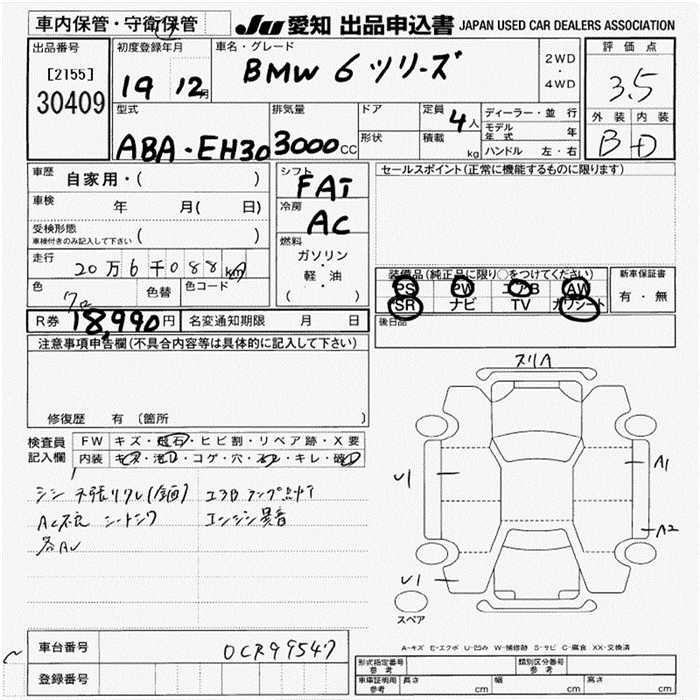 車内保管・守衛保管
JU 愛知 出品申込書 JAPAN USED CAR DEALERS ASSOCIATION
出品番号
[2155]
30409
初度登録年月
19 12月
車名・グレード
BMW 6 ツリーズ
2WD
・
4WD
評価点
3.5
外装 内装
B D
型式
ABA・EH30
排気量
3000CC
ドア
形状
定員 4人
積載 kg
ディーラー・並行
モデル年式 年
ハンドル 左・右
車歴 自家用・( )
車検 年 月( 日)
受検形態
車検付きのみ記入して下さい ( )
走行
20万6千088km
色 クロ 色替 色コード
シフト
FAT
冷房
AC
燃料
ガソリン
・
軽・油
( )
セールスポイント(正常に機能するものに限ります)
装備品(純正品に限り○をつけてください)
PS PW エアB AW
SR ナビ TV カワシート
新車保証書
有・無
後日品
R券 18,990円 名変通知期限 月 日
注意事項申告欄(不具合内容等は具体的に記入して下さい)
修復歴 有 〔箇所 〕
検査員
記入欄
FW キズ・飛石・ヒビ割・リペア跡・X要
内装 キズ・汚れ・コゲ・穴・スレ・キレ・破れ
エアBランプ点灯
AC不良 シートシワ エンジン異音
各AU
スリA
U1
A1
A2
U1
スペア
A-キズ E-エクボ U-凹み W-補修跡 S-サビ C-腐食 XX-交換済
車台番号 0CR99547
登録番号
形式指定番号
参考
類別区分番号
参考
車庫証明用
参考
長さ cm 幅 cm 高さ cm